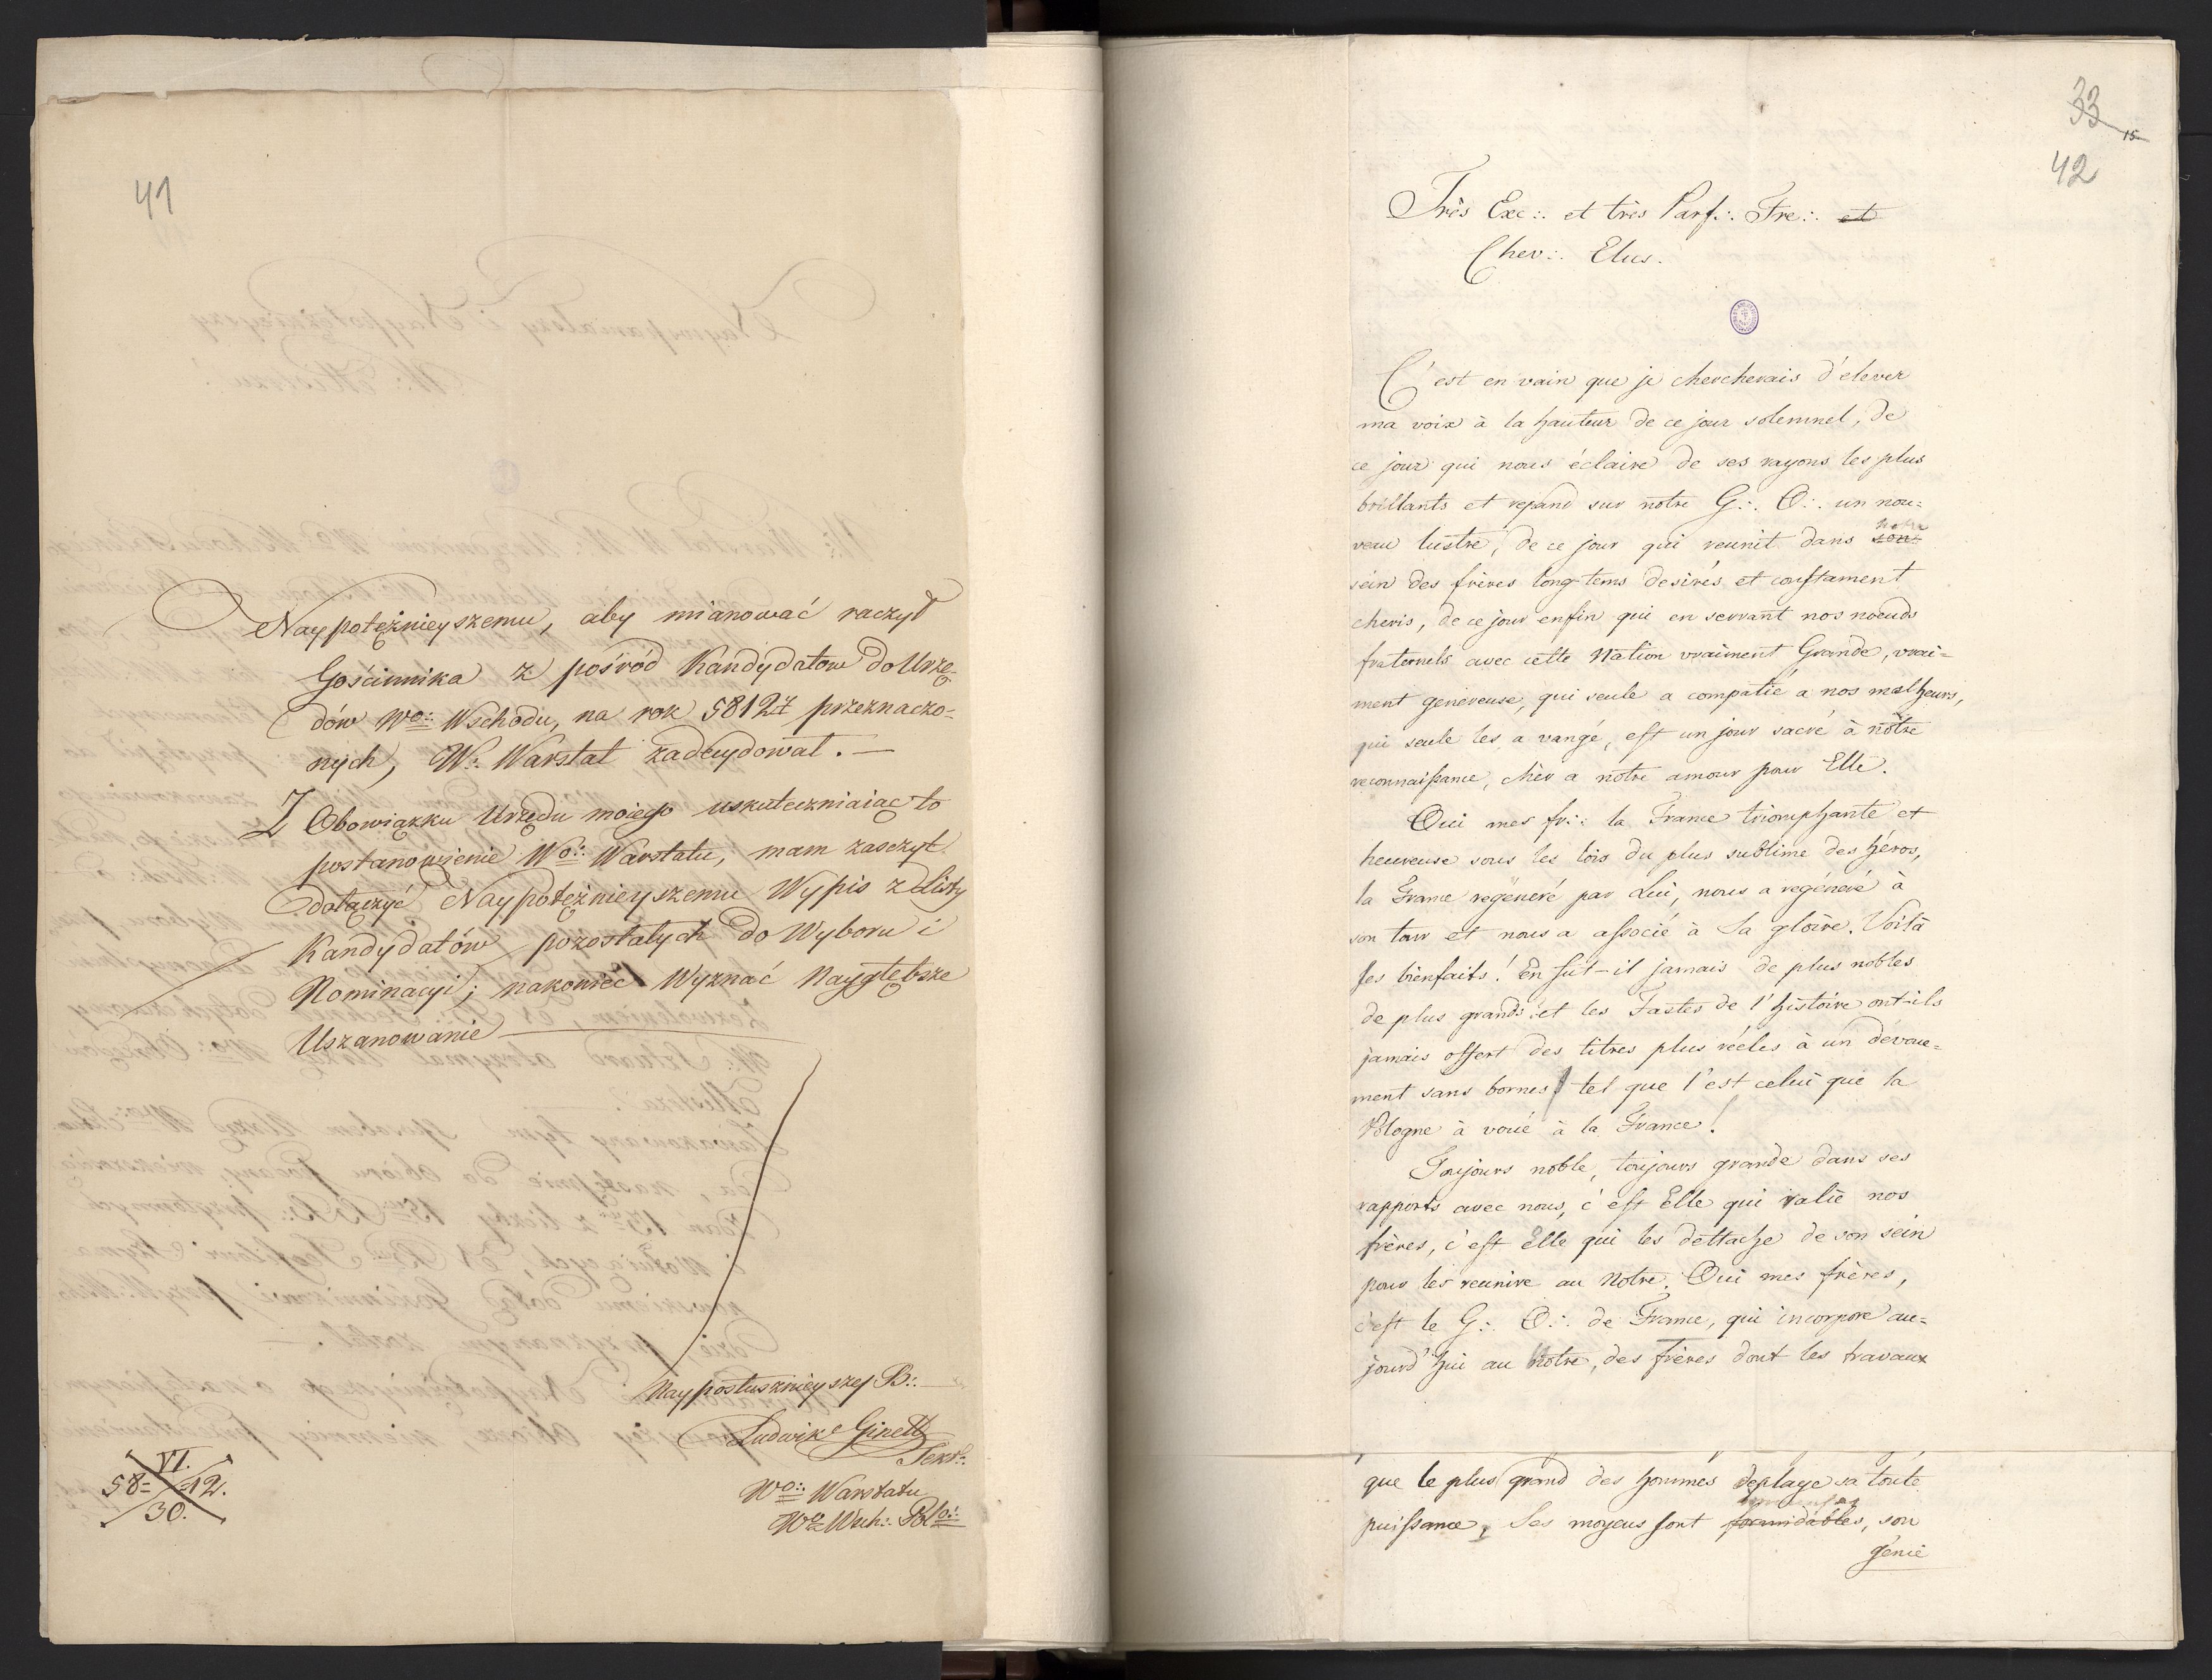 41
Naypotężnieyszemu, aby mianować raczył
Gościnnika z pośród Kandydatow do Urzę-
dów Wo:: Wschodu, na rok 5812ty przeznaczo-
nych, W:. Warstat zadecydował. —
Z Obowiązku Urzędu moiego uskuteczniaiąc to
postanowienie Wo:: Warstatu, mam zasczyt
dołączyć Naypotężnieyszemu Wypis z Listy
Kandydatów pozostałych do Wyboru i
Nominacyi; nakoniec Wyznać Naygłębsze
Uszanowanie
Nayposłusznieyszy B:.
Ludwik Ginett
Sekr:.
Wo:: Warstatu
Wo Wsch:. Pol
VI.
58= =12.
30.
33
15
42
Très Exc:. et très Parf:. Fre:. et
Chev:. Elus.
C'est en vain que je chercherais d'elever
ma voix à la hauteur de ce jour solemnel, de
ce jour qui nous éclaire de ses rayons les plus
brillants et repand sur notre G:. O:. un nou=
notre
veau lustre, de ce jour qui reunit dans son
sein des frères long-tems desirés et constament
cheris, de ce jour enfin qui en serrant nos noeuds
fraternels avec cette Nation vraiment Grande, vrai=
ment genereuse, qui seule a compatie a nos malheurs,
qui seule les a vangé, est un jour sacré à nôtre
reconnaissance, chèr a notre amour pour Elle.
Oui mes fr:. la France triomphante et
heureuse sous les lois du plus sublime des héros,
la France regéneré par Lui, nous a regéneré à
son tour et nous a associé à Sa gloire. Voilà
ses bienfaits! En fut-il jamais de plus nobles
de plus grands et les Fastes de l'histoire ont-ils
jamais offert des titres plus réeles à un dévoue=
ment sans bornes tel que l'est celui que la
Pologne à voué à la France!
Toujours noble, toujours grande dans ses
rapports avec nous, c'est Elle qui ralie nos
frères, c'est Elle qui les dettache de son sein
pour les reunire au Notre. Oui mes frères,
c'est le G:. O:. de France, qui incorpore au=
jourd'hui au notre, des frères dont les travaux
que le plus grand des hommes deplaye sa toute
puissance, Ses moyens sont formidables, son
génie